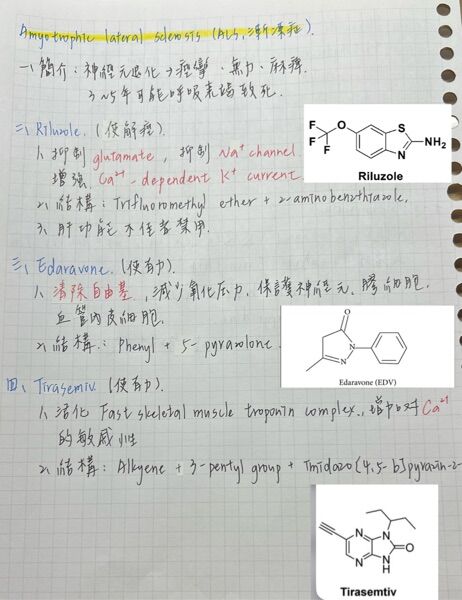 Amyotrophic lateral sclerosis (ALS, 漸凍症).
一、簡介:神經元退化→痙攣、無力、麻痺.
3~5年可能呼吸衰竭致死.
二、Riluzole. (使解痙).
1、抑制 glutamate, 抑制 Na⁺ channel.
增強 Ca²⁺-dependent K⁺ current
2、結構:Trifluoromethyl ether + 2-aminobenzthiazole.
3、肝功能不佳者禁用.
F
F
F
O
S
N
NH₂
Riluzole
三、Edaravone. (使有力).
1、清除自由基, 減少氧化壓力, 保護神經元、膠細胞、
血管內皮細胞.
2、結構:Phenyl + 5-pyrazolone.
O
N
N
CH₃
Edaravone (EDV)
四、Tirasemtiv. (使有力).
1、活化 Fast skeletal muscle troponin complex, 增加對 Ca²⁺
的敏感性
2、結構:Alkyene + 3-pentyl group + Imidazo[4,5-b]pyrazin-2-
N
N
N
O
NH
Tirasemtiv